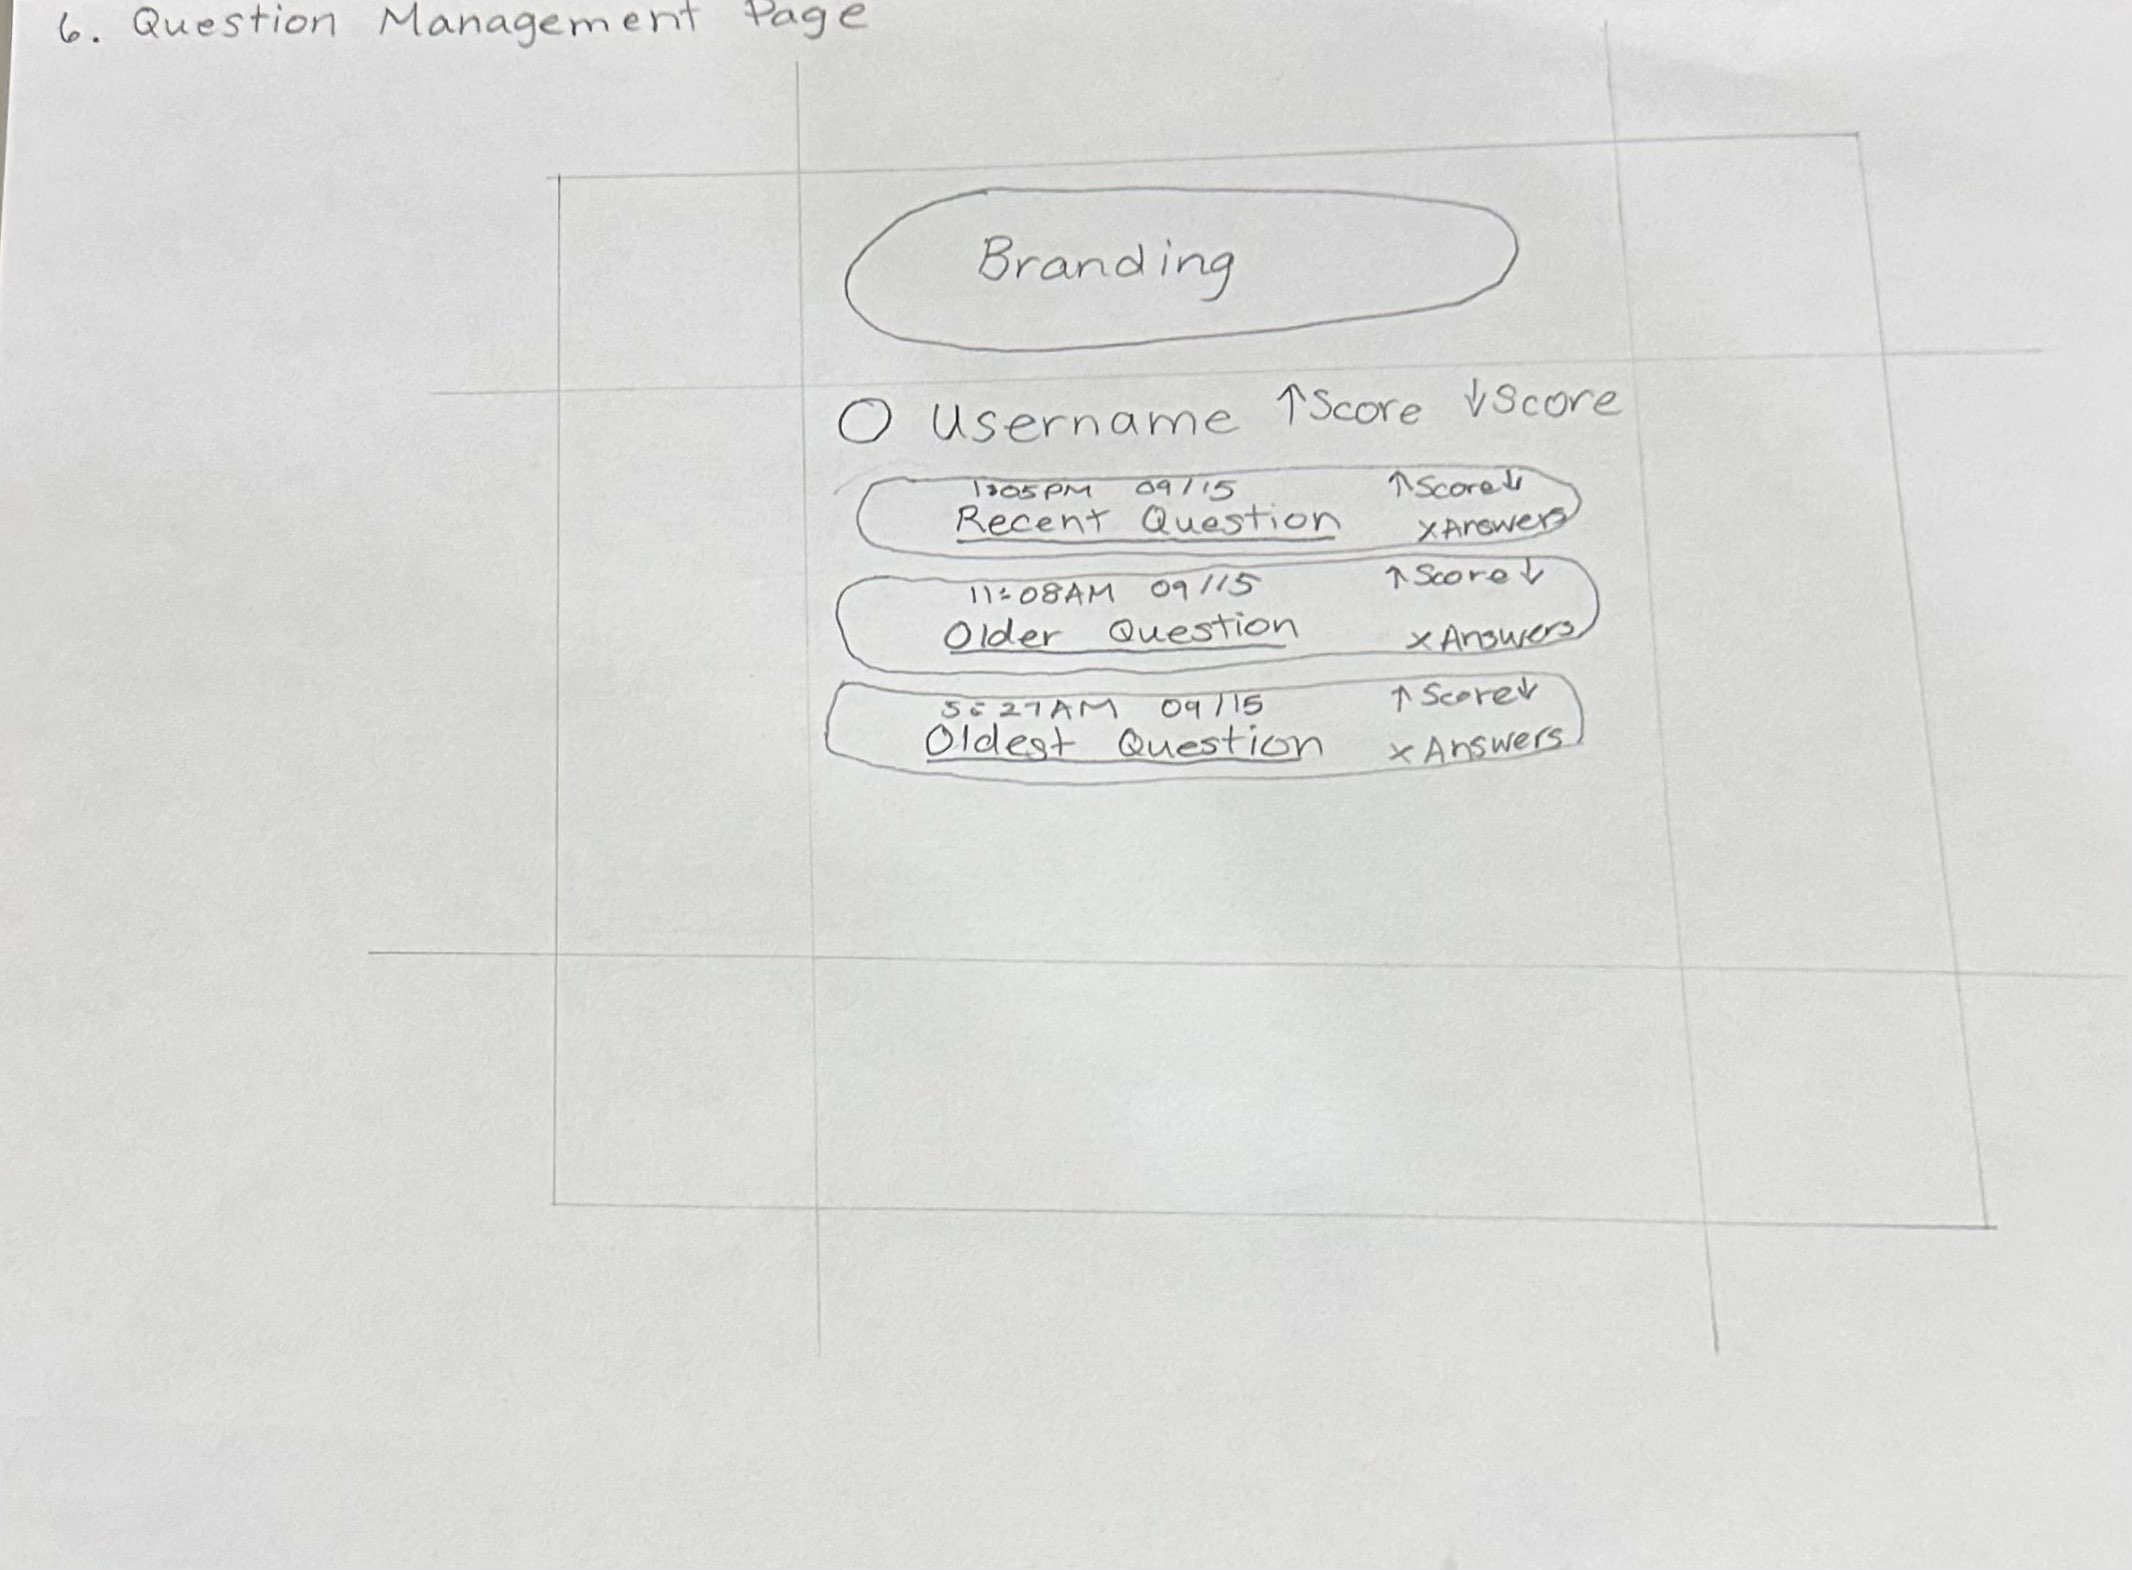 6. Question Management Page
Branding
Username ↑Score ↓Score
1:05PM 09/15 ↑Score↓
Recent Question xAnswers
11:08AM 09/15 ↑Score↓
Older Question xAnswers
5:27AM 09/15 ↑Score↓
Oldest Question xAnswers